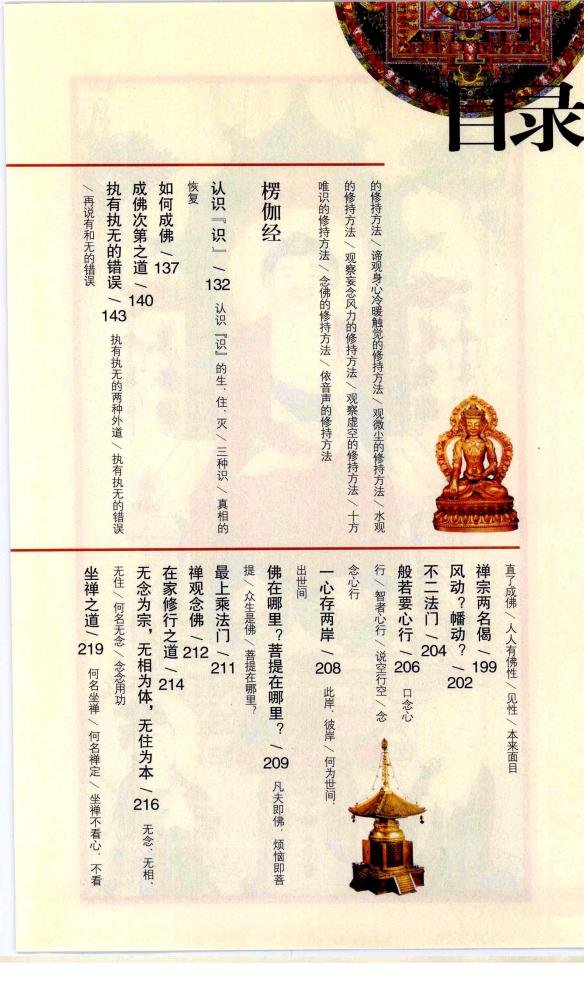 目录
的修持方法／谛观身心冷暖触觉的修持方法／观微尘的修持方法／水观
的修持方法／观察妄念风力的修持方法／观察虚空的修持方法／十方
唯识的修持方法／念佛的修持方法／依音声的修持方法
楞伽经
认识『识』／132 认识『识』的生、住、灭／三种识／真相的
恢复
如何成佛／137
成佛次第之道／140
执有执无的错误／143 执有执无的两种外道／执有执无的错误
／再说有和无的错误
直了成佛／人人有佛性／见性／本来面目
禅宗两名偈／199
风动？幡动？／202
不二法门／204
般若要心行／206 口念心
行／智者心行／说空行空／念
念心行
一心存两岸／208 此岸、彼岸／何为世间、
出世间
佛在哪里？菩提在哪里？／209 凡夫即佛，烦恼即菩
提／众生是佛／菩提在哪里？
最上乘法门／211
禅观念佛／212
在家修行之道／214
无念为宗，无相为体，无住为本／216 无念、无相、
无住／何名无念／念念用功
坐禅之道／219 何名坐禅／何名禅定／坐禅不看心、不看